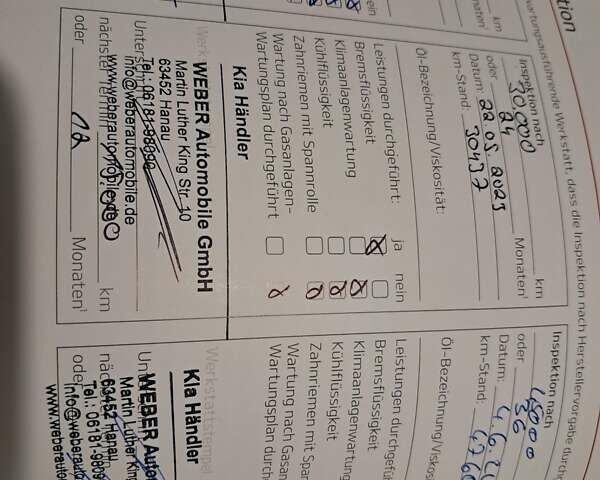 wartungsausführende Werkstatt, dass die Inspektion nach Herstellervorgabe durch
Inspektion nach 30.000 km
oder 24 Monaten¹
Datum: 22.05.2023
km-Stand: 30437
Öl-Bezeichnung/Viskosität:
Leistungen durchgeführt: ja nein
Bremsflüssigkeit
Klimaanlagenwartung
Kühlflüssigkeit
Zahnriemen mit Spannrolle
Wartung nach Gasanlagen-
Wartungsplan durchgeführt
Kia Händler
WEBER Automobile GmbH
Martin Luther King Str. 10
63452 Hanau
Tel.: 06181-98090
info@weberautomobile.de
www.weberautomobile.de
nächster Termin km
oder 12 Monaten¹
Inspektion nach 45000
oder 36
Datum: 4.6.
km-Stand:
Öl-Bezeichnung/Viskosi
Leistungen durchgefü
Bremsflüssigkeit
Klimaanlagenwartung
Kühlflüssigkeit
Zahnriemen mit Spar
Wartung nach Gasan
Wartungsplan durch
Werkstattstempel
Kia Händler
WEBER Auto
Martin Luther King
63452 Hanau
Tel.: 06181-9809
info@weberau
www.weberauto